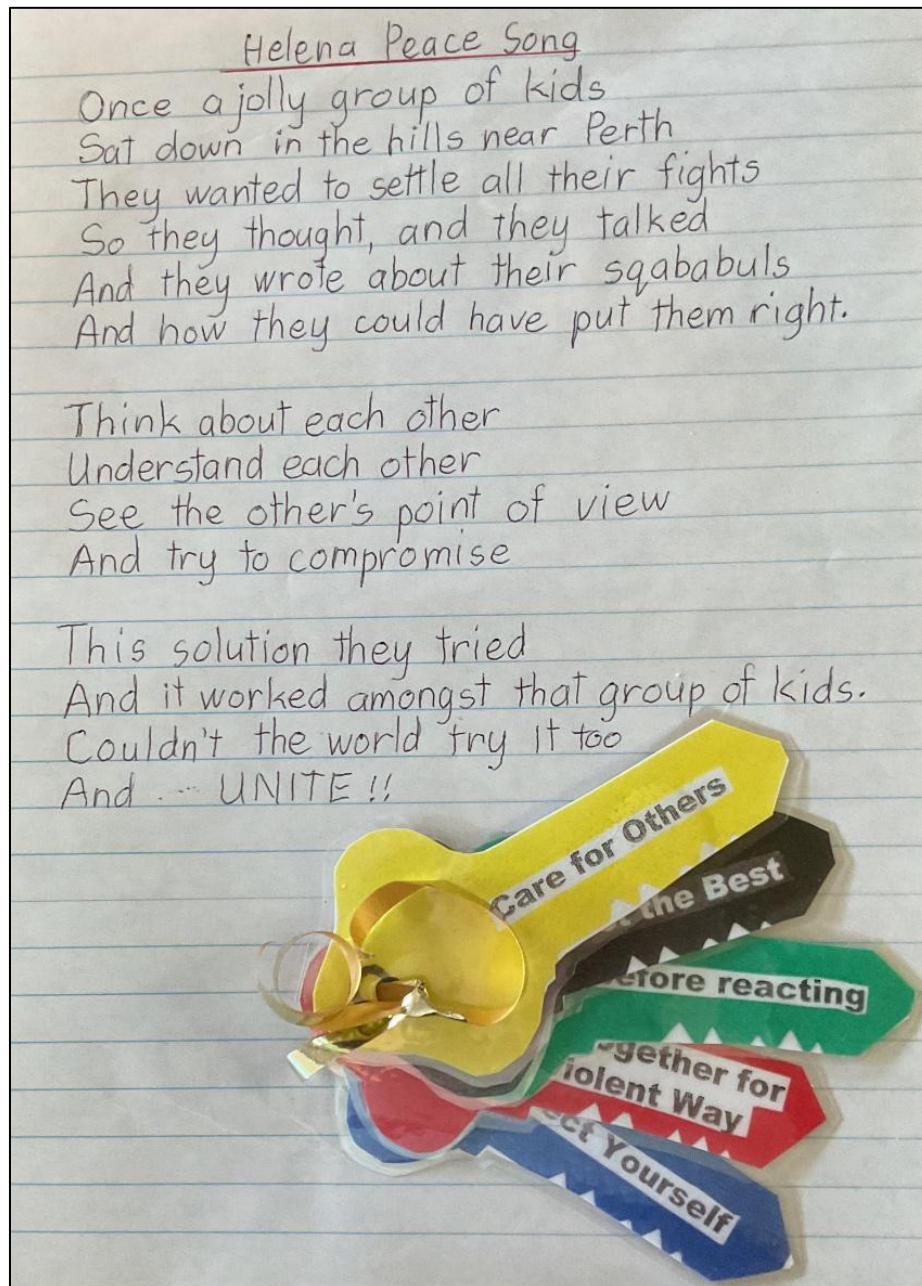 Helena Peace Song
Once a jolly group of kids
Sat down in the hills near Perth
They wanted to settle all their fights
So they thought, and they talked
And they wrote about their sqababuls
And how they could have put them right.
Think about each other
Understand each other
See the other's point of view
And try to compromise
This solution they tried
And it worked amongst that group of kids.
Couldn't the world try it too
And ... UNITE!!
Care for Others
the Best
efore reacting
gether for
iolent Way
ct Yourself